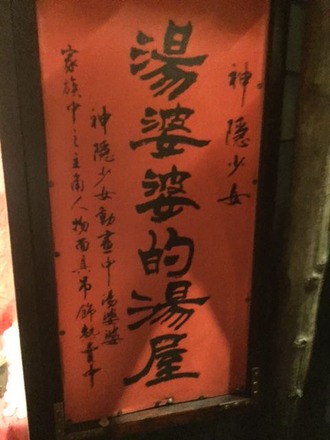 神隱少女
湯婆婆的湯屋
神隱少女動畫中湯婆婆
家族中之主角人物面具吊飾魅青中